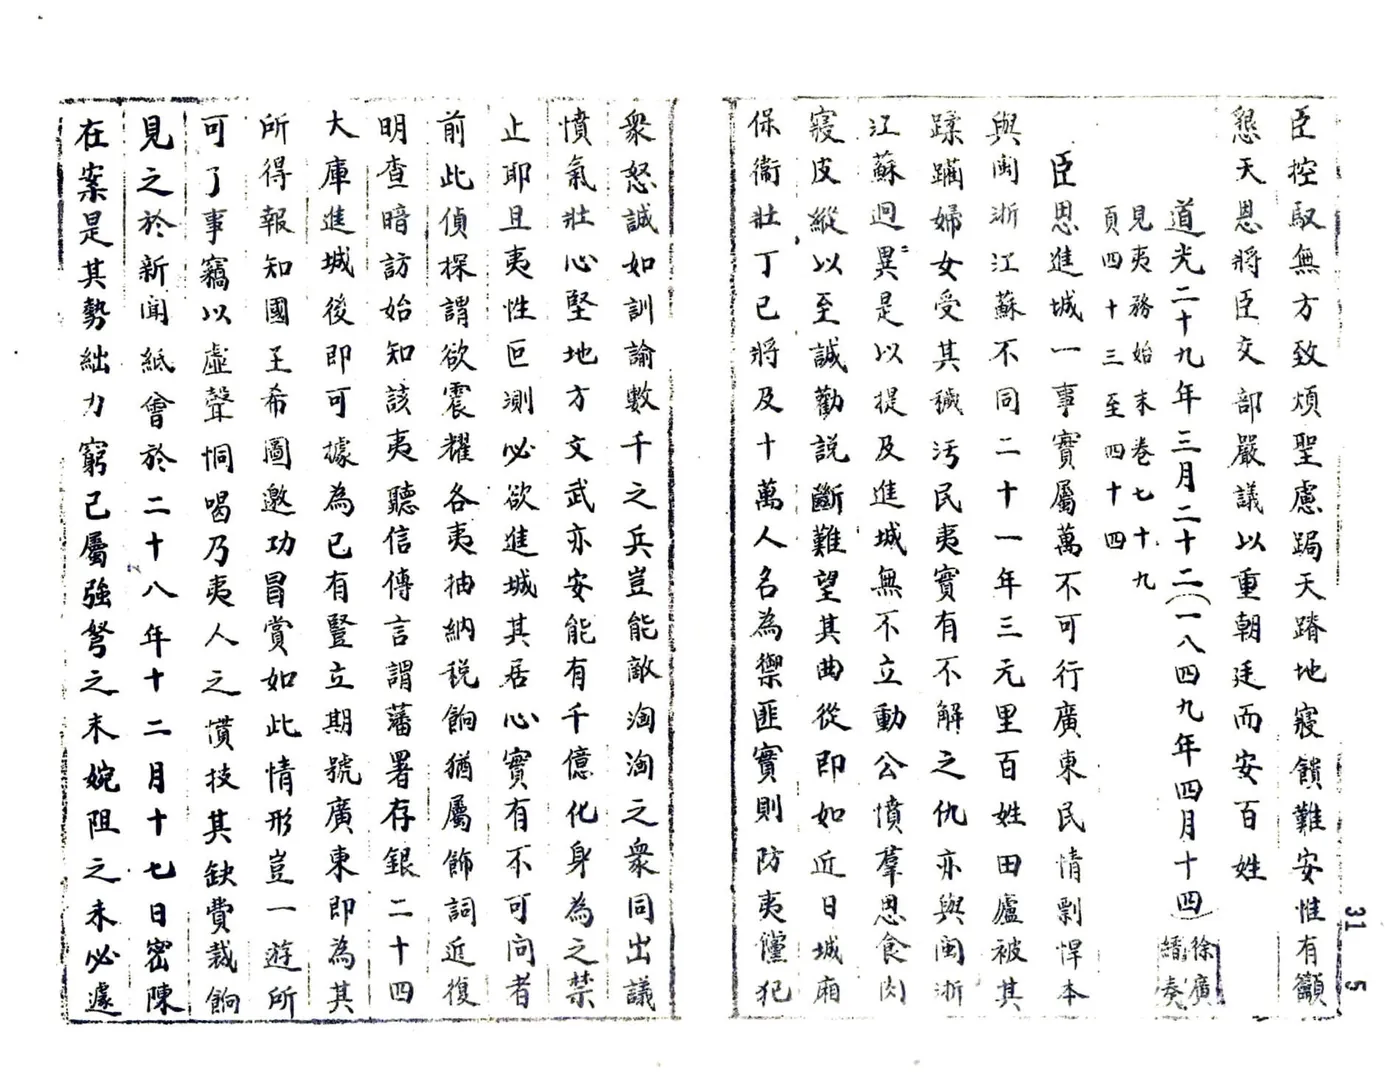 臣控馭無方致煩聖慮跼天蹐地寢饋難安惟有籲
懇天恩將臣交部嚴議以重朝廷而安百姓
道光二十九年三月二十二(一八四九年四月十四)徐廣縉奏
見夷務始末卷七十九
頁四十三至四十四
臣思進城一事實屬萬不可行廣東民情剽悍本
與閩浙江蘇不同二十一年三元里百姓田廬被其
蹂躪婦女受其穢污民夷實有不解之仇亦與閩浙
江蘇迥異是以提及進城無不立動公憤羣思食肉
寢皮縱以至誠勸說斷難望其曲從即如近日城廂
保衞壯丁已將及十萬人名為禦匪實則防夷儻犯
衆怒誠如訓諭數千之兵豈能敵洶洶之衆同出議
憤氣壯心堅地方文武亦安能有千億化身為之禁
止耶且夷性叵測必欲進城其居心實有不可問者
前此偵探謂欲震耀各夷抽納税餉猶屬飾詞近復
明查暗訪始知該夷聽信傳言謂藩署存銀二十四
大庫進城後即可據為已有豎立期號廣東即為其
所得報知國王希圖邀功冒賞如此情形豈一遊所
可了事竊以虛聲恫喝乃夷人之慣技其缺費裁餉
見之於新聞紙曾於二十八年十二月十七日密陳
在案是其勢絀力窮己屬強弩之末婉阻之未必遽
31 5